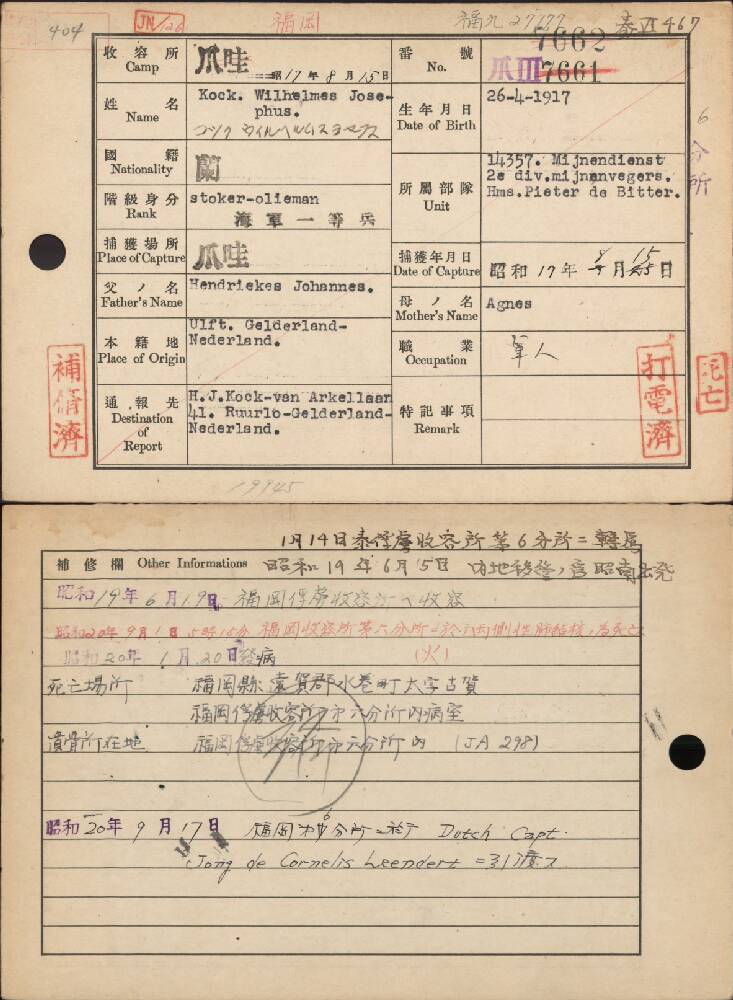 404
JN/126
福岡
福九 27177
泰Ⅵ467
收容所 Camp
爪哇
昭17年8月15日
番號 No.
爪Ⅲ
7662
7661
姓名 Name
Kock. Wilhelmes Jose-
phus.
コツク ウイルヘルムス ヨセフス
生年月日 Date of Birth
26-4-1917
6分所
國籍 Nationality
蘭
所屬部隊 Unit
14357. Mijnendienst
2e div.mijnenvegers.
Hms.Pieter de Bitter.
階級身分 Rank
stoker-olieman
海軍一等兵
捕獲場所 Place of Capture
爪哇
捕獲年月日 Date of Capture
昭和17年 月15日
父ノ名 Father's Name
Hendriekes Johannes.
母ノ名 Mother's Name
Agnes
本籍地 Place of Origin
Ulft. Gelderland-
Nederland.
職業 Occupation
軍人
通報先 Destination of Report
H.J.Kock-van Arkellaan
41. Ruurlo-Gelderland-
Nederland.
特記事項 Remark
補脩濟
打電濟
死亡
19945
1月14日泰俘虜收容所第6分所ニ轉属
補修欄 Other Informations
昭和19年6月5日 内地移管ノ為昭南出発
昭和19年6月19日 福岡俘虜收容所ヘ收容
昭和20年9月1日5時15分 福岡收容所第六分所ニ於テ右側性肺結核ノ為死亡
昭和20年1月20日發病
(火)
死亡場所 福岡縣遠賀郡水巻町大字古賀
福岡俘虜收容所第六分所内病室
遺骨所在地 福岡俘虜收容所第六分所内 (JA 298)
昭和20年9月17日 福岡第6分所ニ於テ Dutch Capt.
Jong de Cornelis Leendert ニ引渡ス